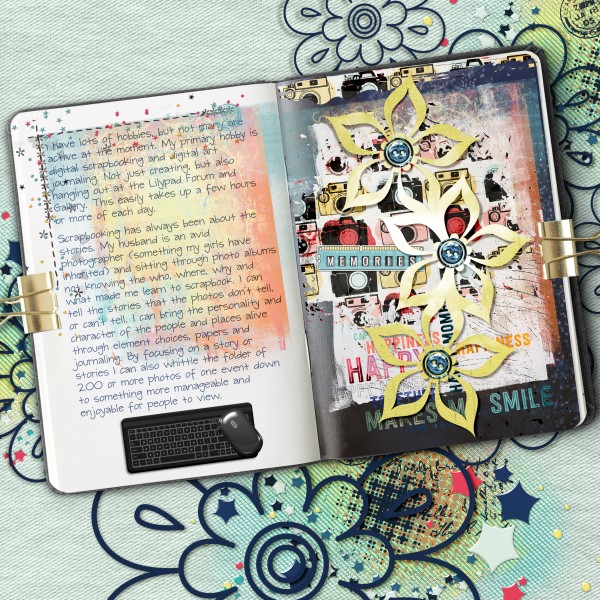 I have lots of hobbies, but not many are
active at the moment. My primary hobby is
digital scrapbooking and digital art
journaling. Not just creating, but also
hanging out at the Lilypad Forum and
Gallery. This easily takes up a few hours
or more of each day.
Scrapbooking has always been about the
stories. My husband is an avid
photographer (something my girls have
inherited) and sitting through photo albums
not knowing the who, where, why and
what made me learn to scrapbook. I can
tell the stories that the photos don't tell,
or can't tell. I can bring the personality and
character of the people and places alive
through element choices, papers and
journaling. By focusing on a story or
stories I can also whittle the folder of
200 or more photos of one event down
to something more manageable and
enjoyable for people to view.
MEMORIES
HAPPINESS
HAPPINESS
HAPPY
HOME
MAKES ME SMILE